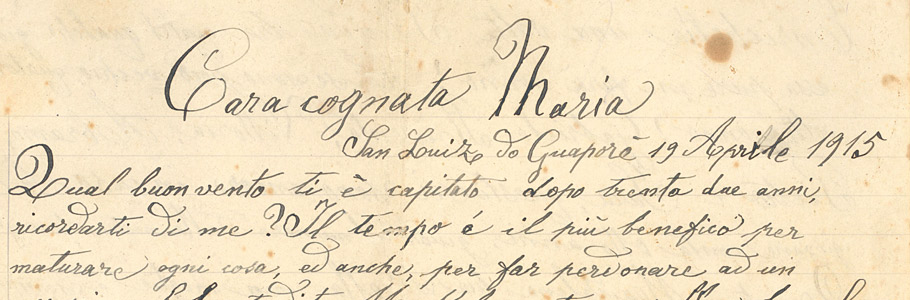 Cara cognata Maria
San Luiz do Guaporè 19 Aprile 1915
Qual buon vento ti è capitato dopo trenta due anni,
ricordarti di me? Il tempo é il più benefico per
maturare ogni cosa, ed anche, per far perdonare ad un